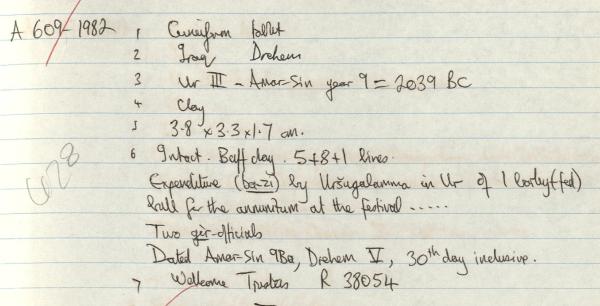 A 609-1982 1 Cuneiform tablet
2 Iraq Drehem
3 Ur III - Amar-Sin year 9 = 2039 BC
4 Clay
5 3.8 x 3.3 x 1.7 cm.
6 Intact. Buff clay. 5+8+1 lines.
Expenditure (ba-zi) by Uršugalamma in Ur of 1 barley(-fed)
bull for the annunitum at the festival .....
Two gìr-officials
Dated Amar-Sin 9Ba, Drehem V, 30th day inclusive.
7 Wellcome Trustees R 38054
628